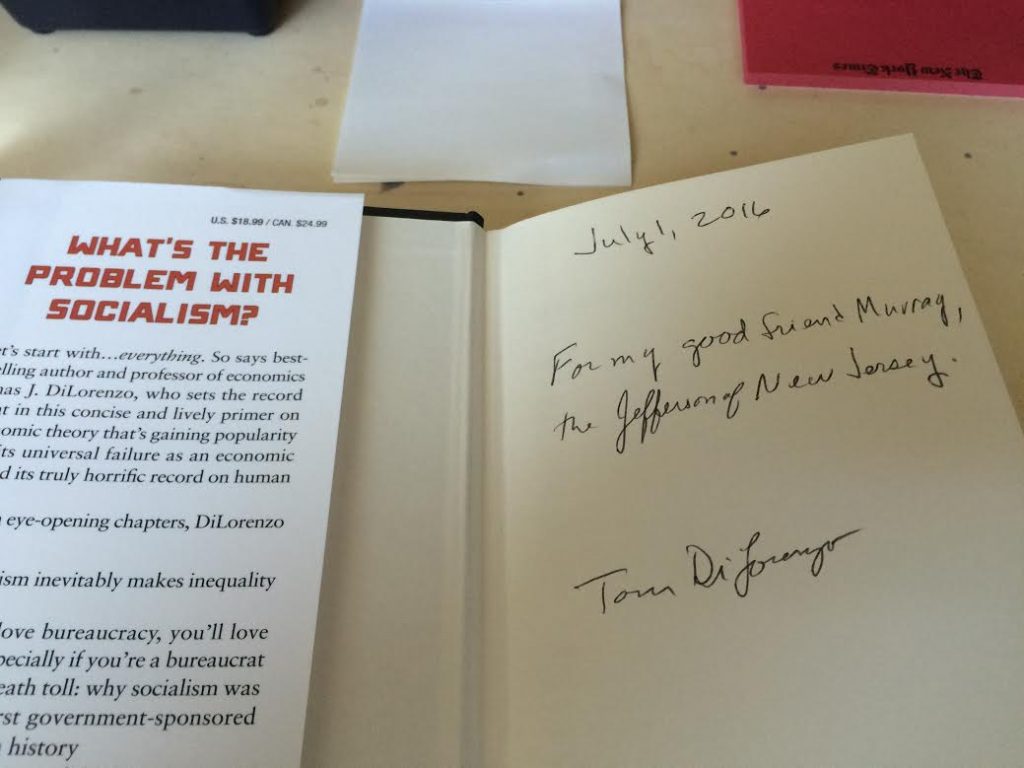 The New York Times
U.S. $18.99 / CAN. $24.99
WHAT'S THE
PROBLEM WITH
SOCIALISM?
et's start with...everything. So says best-
elling author and professor of economics
mas J. DiLorenzo, who sets the record
ht in this concise and lively primer on
omic theory that's gaining popularity
its universal failure as an economic
d its truly horrific record on human
eye-opening chapters, DiLorenzo
ism inevitably makes inequality
love bureaucracy, you'll love
pecially if you're a bureaucrat
eath toll: why socialism was
rst government-sponsored
history
July 1, 2016
For my good friend Murray,
the Jefferson of New Jersey.
Tom DiLorenzo